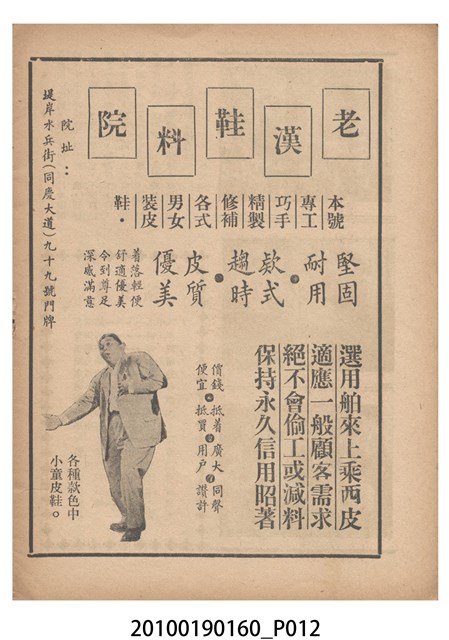 老漢鞋料院
本號
專工
巧手
精製
修補
各式
男女
裝皮
鞋・
堅固
耐用・
欵式
趨時・
皮質
優美
着落輕便
舒適優美
令到尊足
深感滿意
院址：
堤岸水兵街（同慶大道）九十九號門牌
選用舶來上乘西皮
適應一般顧客需求
絕不會偷工或減料
保持永久信用昭著
價錢・抵着・廣大・同聲
便宜・抵買・用戶・讚許
各種款色中
小童皮鞋。
20100190160_P012